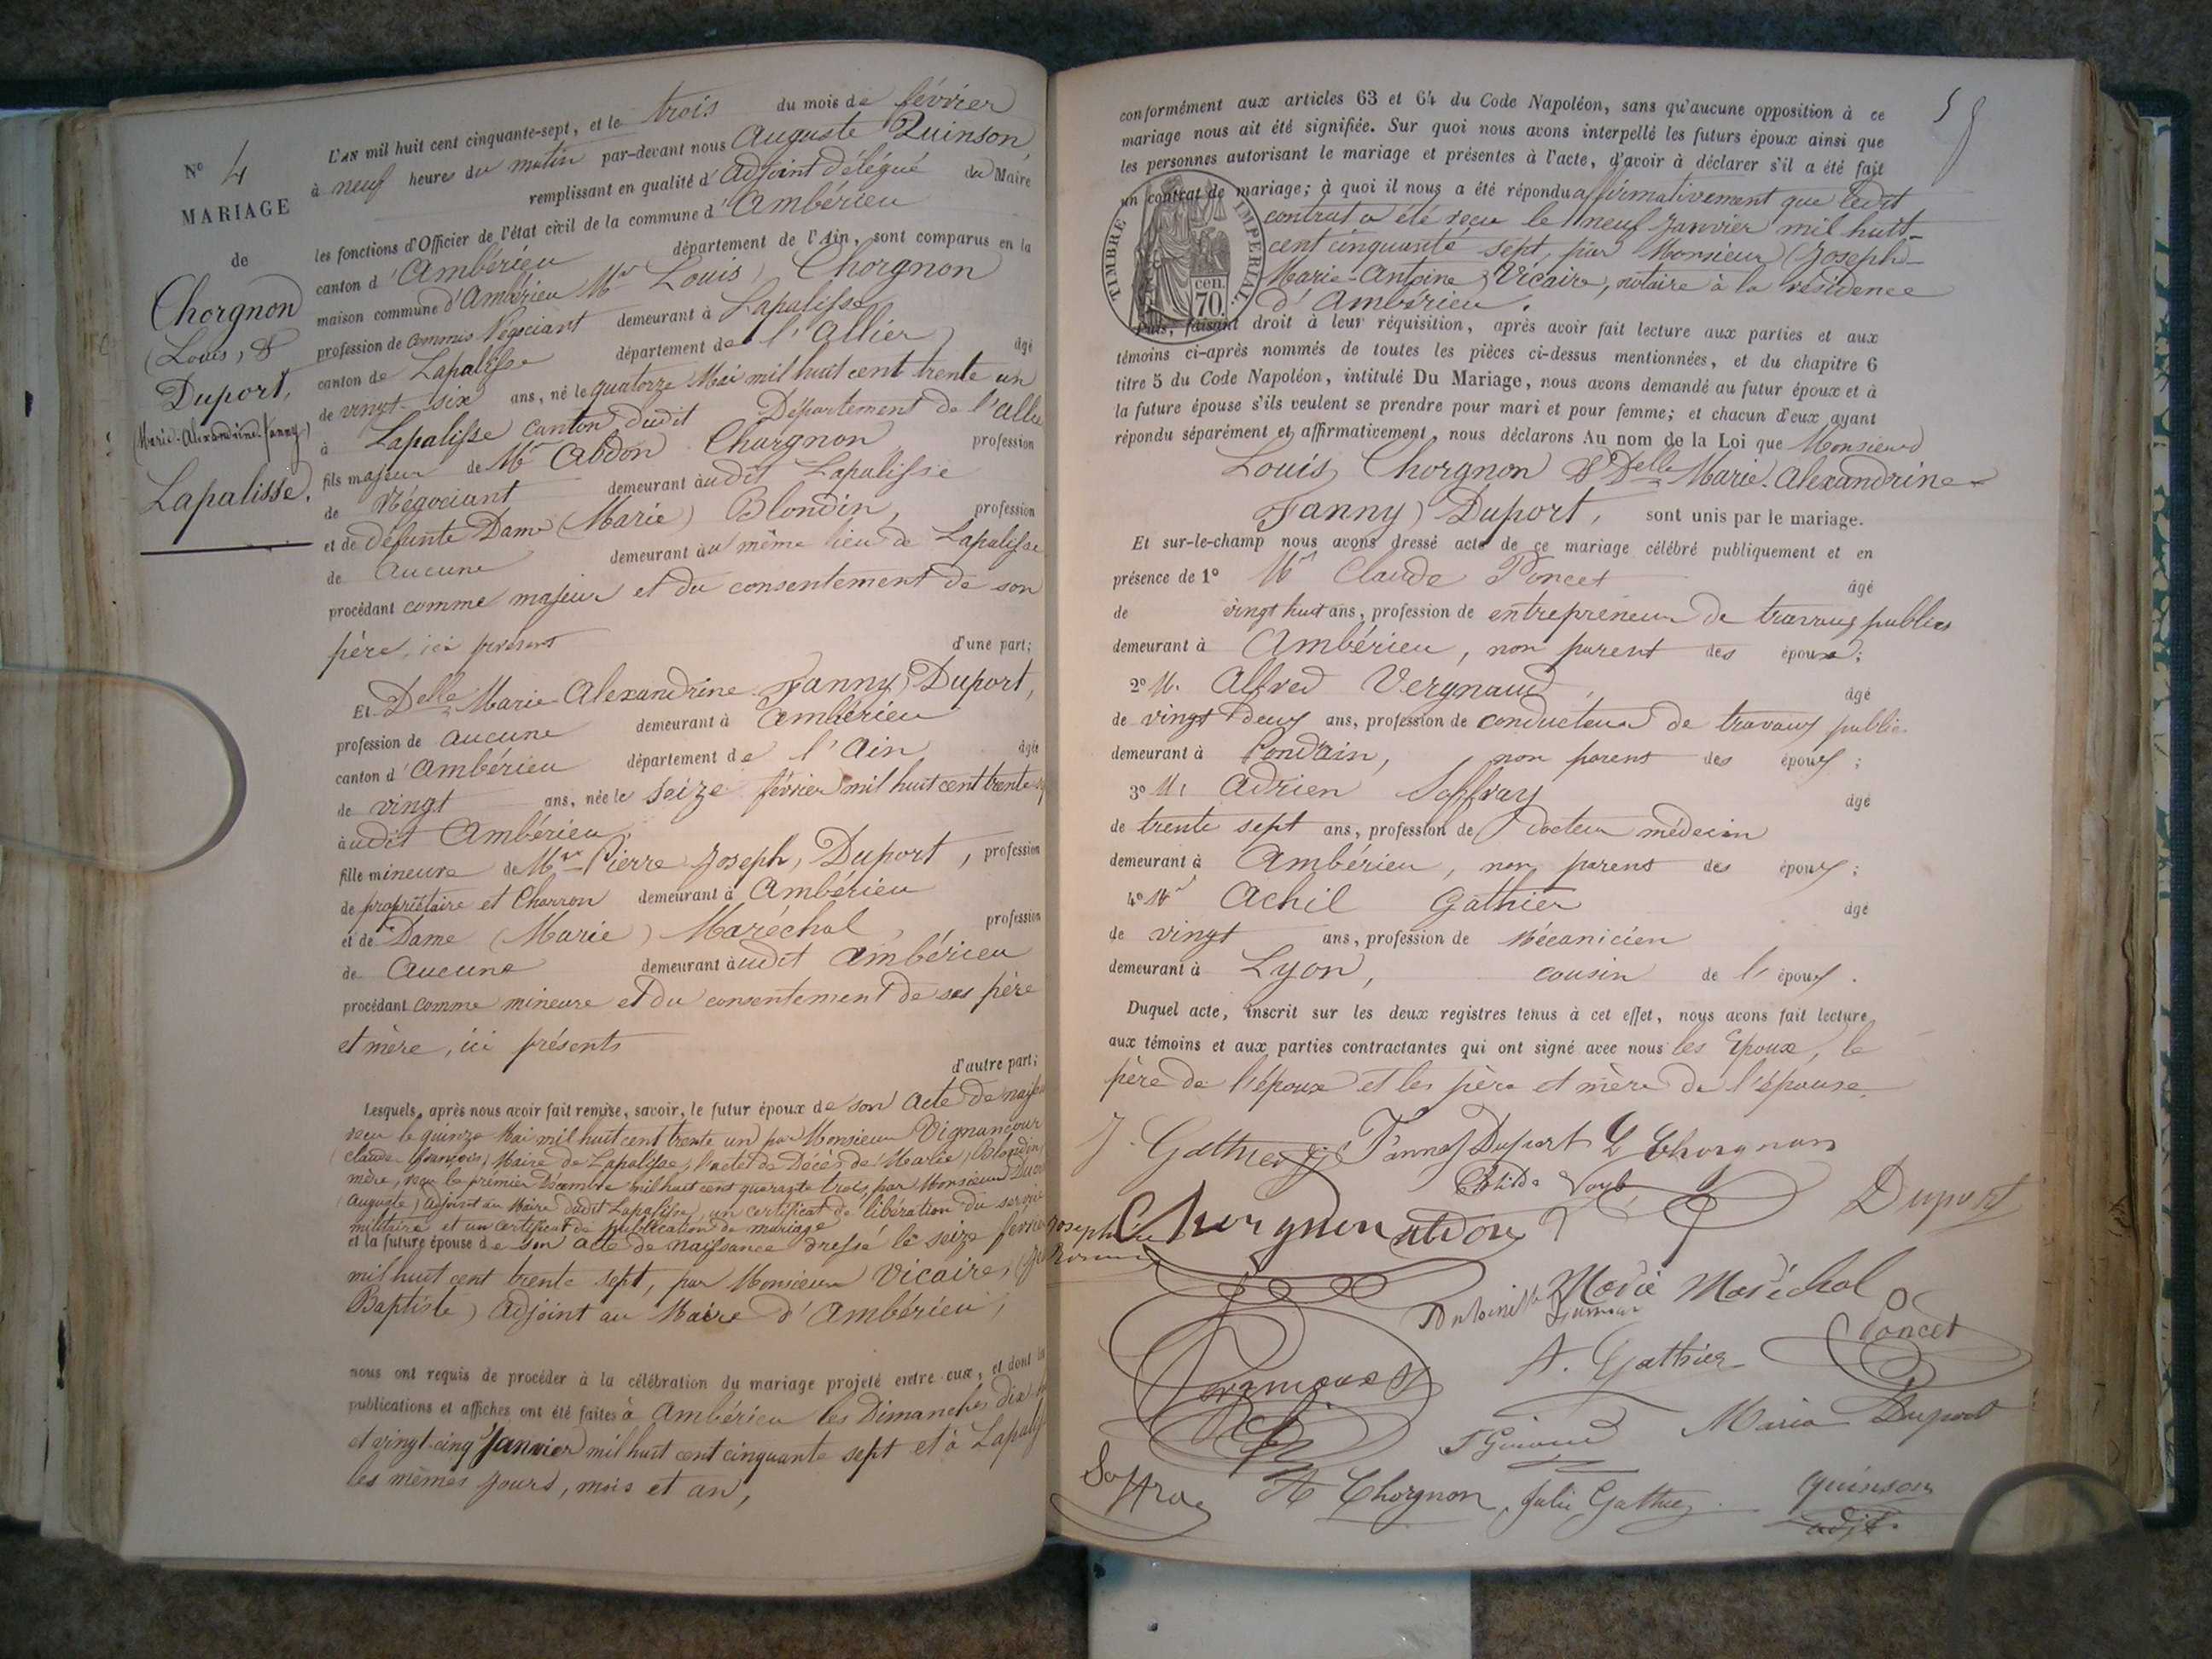 N° 4
MARIAGE
de
Chorgnon
(Louis, &
Duport,
(Marie-Alexandrine-fanny)
Lapalisse.
L'AN mil huit cent cinquante-sept, et le trois du mois de février
à neuf heures du matin par-devant nous Auguste Quinson
remplissant en qualité d'Adjoint délégué du Maire
les fonctions d'Officier de l'état civil de la commune d'Ambérieu
canton d'Ambérieu département de l'Ain, sont comparus en la
maison commune d'Ambérieu Mr Louis, Chorgnon
profession de Commis Négociant demeurant à Lapalisse
canton de Lapalisse département de l'Allier âgé
de vingt-six ans, né le quatorze Mai mil huit cent trente un
à Lapalisse canton dudit Département de l'Allie
fils majeur de Mr Abdon Chorgnon profession
de Négociant demeurant àudit Lapalisse
et de défunte Dame (Marie) Blondin, profession
de aucune demeurant àu même lieu de Lapalisse
procédant comme majeur et du consentement de son
père, ici présent d'une part;
Et Delle Marie-Alexandrine-Fanny) Duport,
profession de aucune demeurant à Ambérieu
canton d'Ambérieu département de l'Ain âgée
de vingt ans, née le seize février mil huit cent trente
àudit Ambérieu,
fille mineure de Mr Pierre Joseph, Duport, profession
de propriétaire et Charron demeurant à Ambérieu
et de Dame (Marie) Maréchal, profession
de Aucune demeurant àudit Ambérieu
procédant comme mineure et du consentement de ses père
et mère, ici présents
d'autre part;
Lesquels, après nous avoir fait remise, savoir, le futur époux de son Acte de naiss
reçu le quinze Mai mil huit cent trente un par Monsieur Vignancour
(Claude François) Maire de Lapalisse, l'acte de Décès de (Marie) Blondin,
mère, reçu le premier Décembre mil huit cent quarante trois, par Monsieur
(Auguste) Adjoint au Maire dudit Lapalisse, un certificat de libération du service
militaire et un certificat de publication de mariage
et la future épouse de son acte de naissance dressé le seize février
mil huit cent trente sept, par Monsieur Vicaire,
Baptiste) Adjoint au Maire d'Ambérieu,
nous ont requis de procéder à la célébration du mariage projeté entre eux, et dont les
publications et affiches ont été faites à Ambérieu les Dimanches dix
et vingt-cinq Janvier mil huit cent cinquante sept et à Lapalis
les mêmes jours, mois et an,
conformément aux articles 63 et 64 du Code Napoléon, sans qu'aucune opposition à ce
mariage nous ait été signifiée. Sur quoi nous avons interpellé les futurs époux ainsi que
les personnes autorisant le mariage et présentes à l'acte, d'avoir à déclarer s'il a été fait
un contrat de mariage; à quoi il nous a été répondu affirmativement que ledit
contrat a été reçu le neuf Janvier mil huit
cent cinquante sept, par Monsieur (Joseph-
Marie-Antoine) Vicaire, notaire à la résidence
d'Ambérieu.
TIMBRE IMPERIAL.
cen.
70.
Puis, faisant droit à leur réquisition, après avoir fait lecture aux parties et aux
témoins ci-après nommés de toutes les pièces ci-dessus mentionnées, et du chapitre 6
titre 5 du Code Napoléon, intitulé Du Mariage, nous avons demandé au futur époux et à
la future épouse s'ils veulent se prendre pour mari et pour femme; et chacun d'eux ayant
répondu séparément et affirmativement nous déclarons Au nom de la Loi que Monsieur
Louis, Chorgnon & Delle Marie-Alexandrine-
Fanny) Duport, sont unis par le mariage.
Et sur-le-champ nous avons dressé acte de ce mariage célébré publiquement et en
présence de 1° Mr Claude Poncet âgé
de vingt huit ans, profession de entrepreneur de travaux publics
demeurant à Ambérieu, non parent des époux;
2° M. Alfred Vergnaud, âgé
de vingt deux ans, profession de conducteur de travaux public
demeurant à non parent des époux;
3° M. Adrien Soffray âgé
de trente sept ans, profession de Docteur médecin
demeurant à Ambérieu, non parent des époux;
4° Mr Achil Gathier âgé
de vingt ans, profession de Mécanicien
demeurant à Lyon, cousin de l'époux.
Duquel acte, inscrit sur les deux registres tenus à cet effet, nous avons fait lecture
aux témoins et aux parties contractantes qui ont signé avec nous les Epoux, le
père de l'époux et les père et mère de l'épouse
J. Gathier Fanny Duport L Chorgnon
Chorgnon abdon Duport
Marie Maréchal
Poncet
A. Gathier
Maria Duport
Soffray A Chorgnon, Julie Gathier Quinson
adjt.